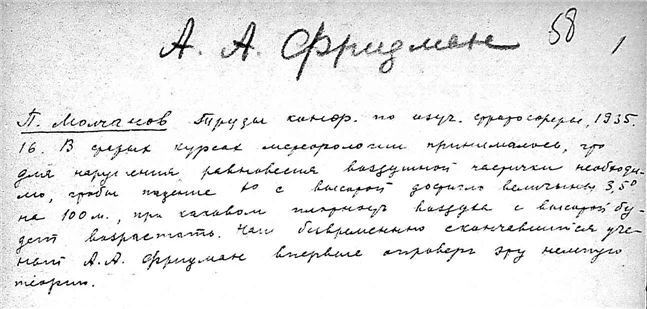 А. А. Фридман 58 1
П. Молчанов Труды конф. по изуч. стратосферы, 1935.
16. В старых курсах метеорологии принималось, что
для нарушения равновесия воздушной частички необходи-
мо, чтобы падение t° с высотой достигло величины 3,5°
на 100 м., при каковом плотность воздуха с высотой бу-
дет возрастать. Наш безвременно скончавшийся уче-
ный А. А. Фридман впервые опроверг эту нелепую
теорию.